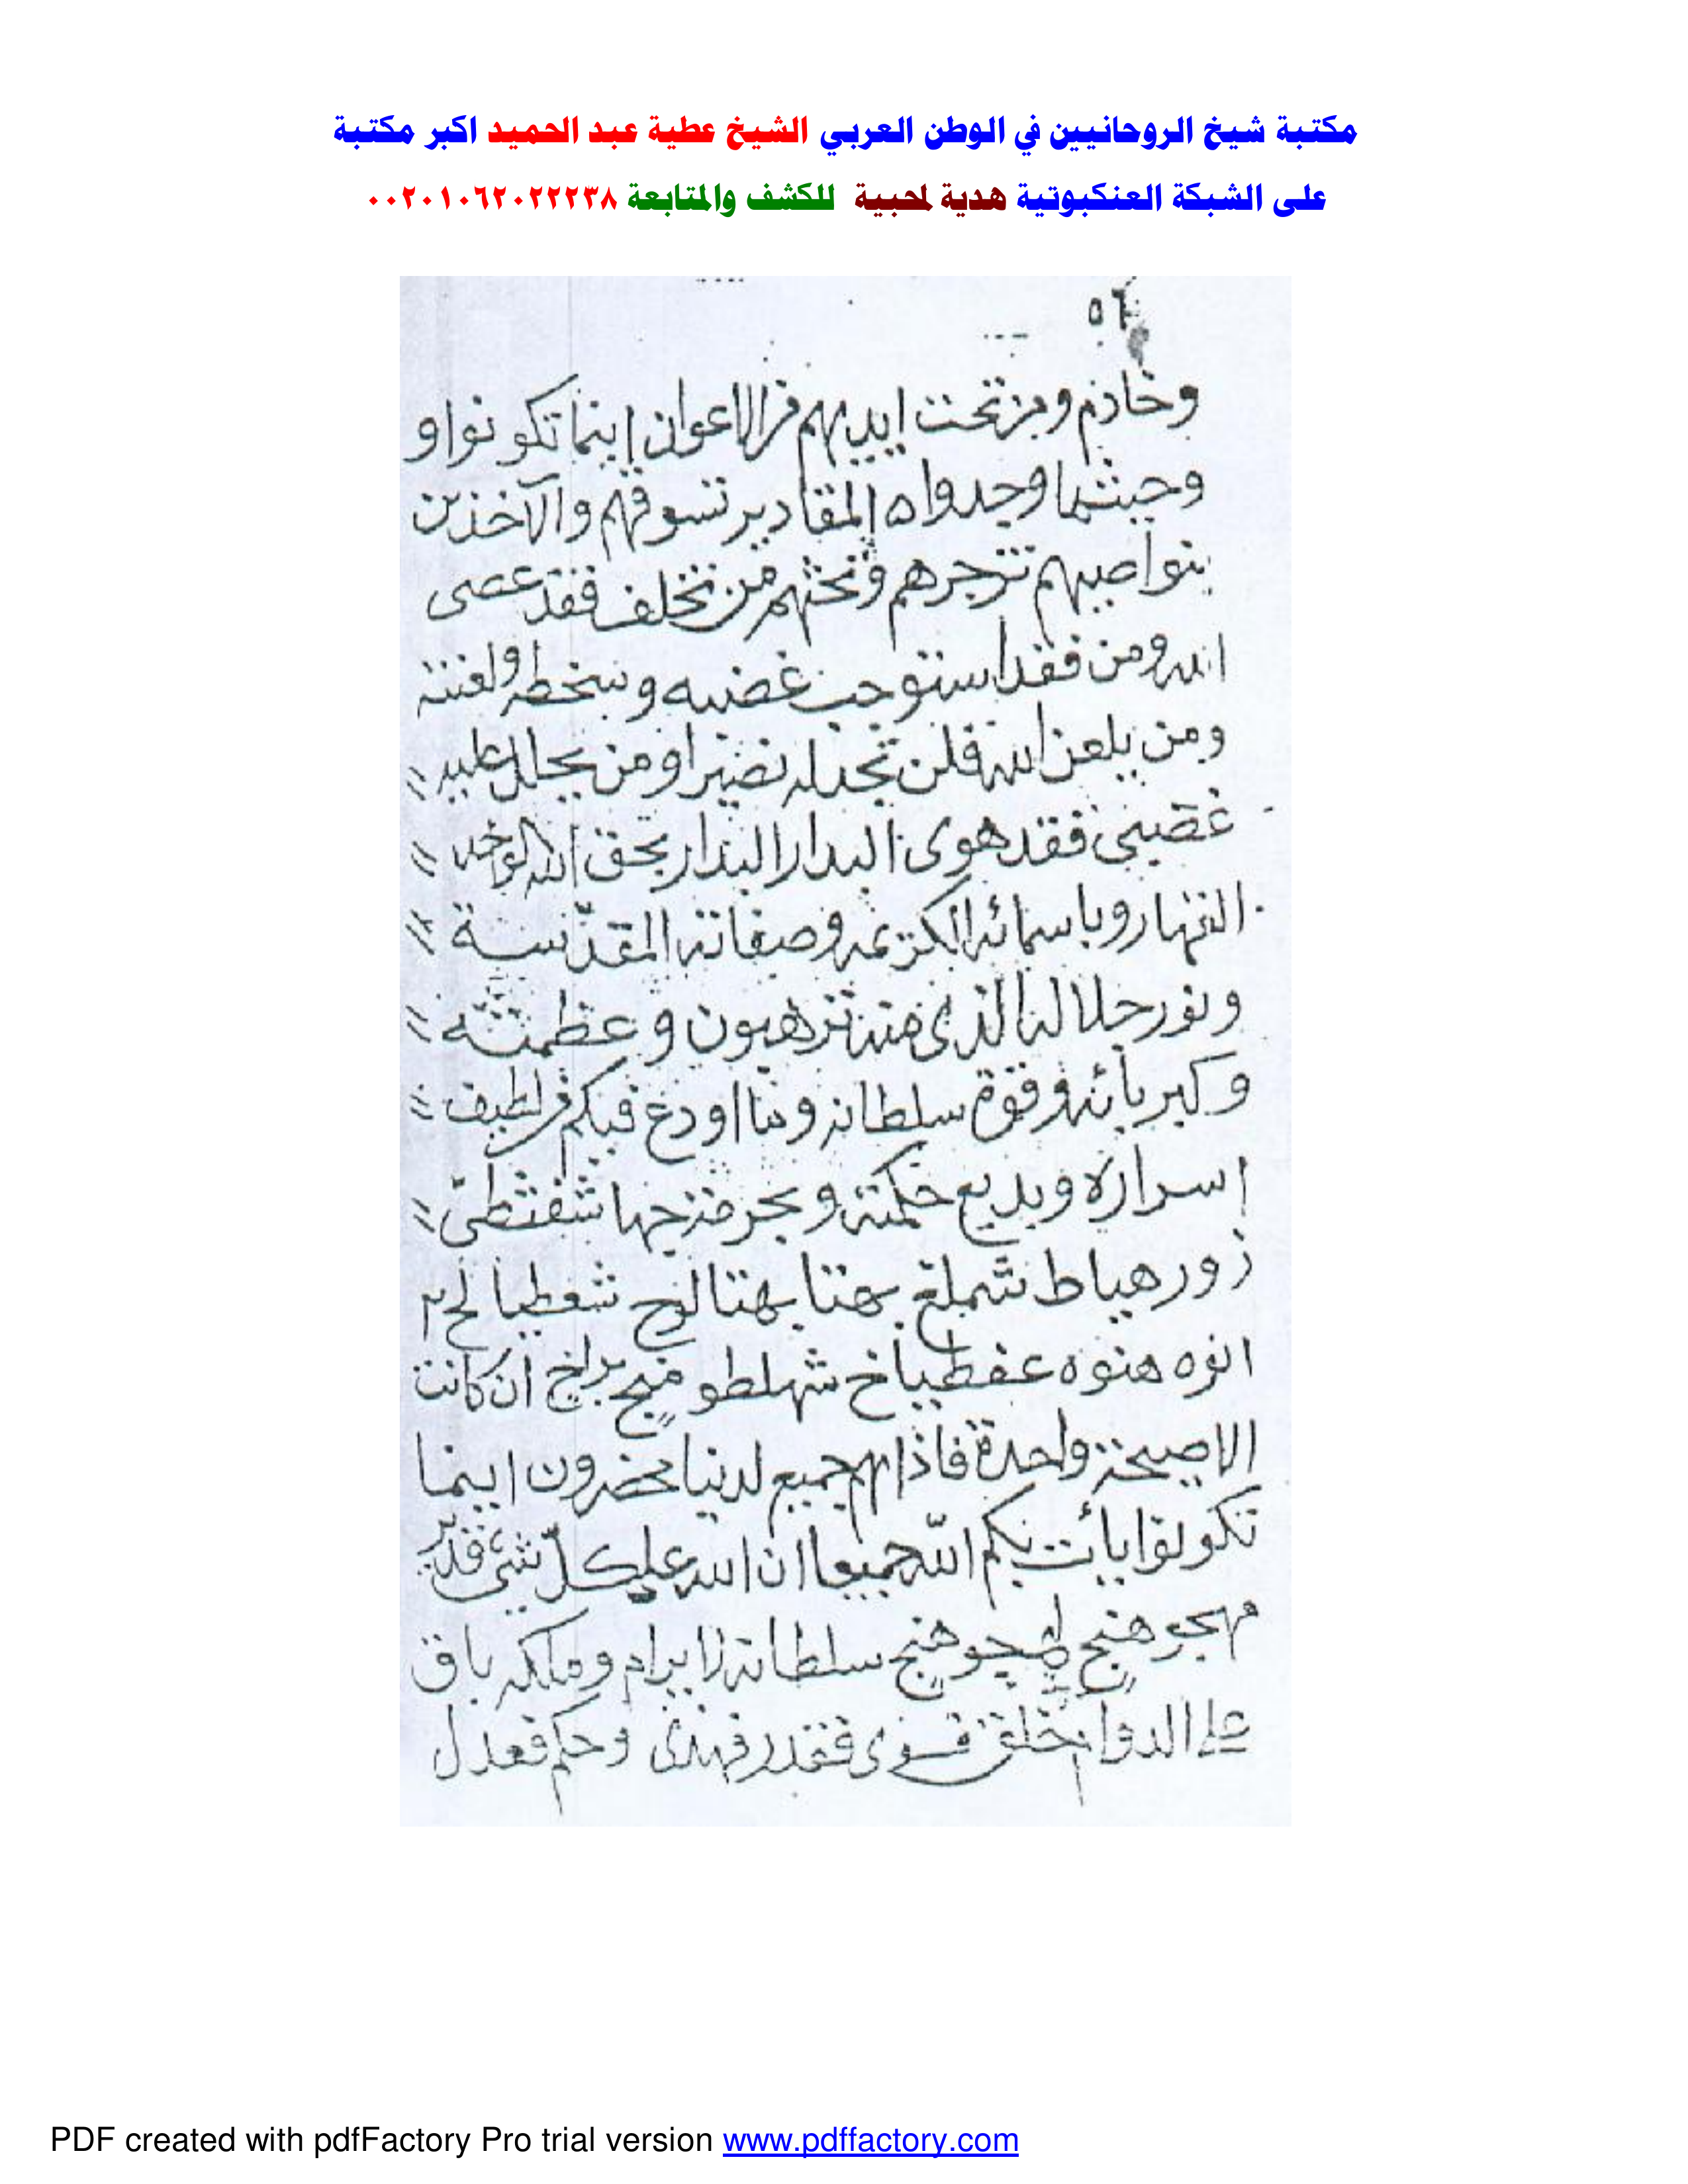 مكتبة شيخ الروحانيين في الوطن العربي الشيخ عطية عبد الحميد اكبر مكتبة
على الشبكة العنكبوتية هدية لمحبية للكشف والمتابعة ٠٠٢٠١٠٦٢٠٢٢٢٣٨
٥٦
وخادم ومن تحت ايديهم من الاعوان اينما تكونوا و
وحيثما وجدوا ه المقادير تسوقهم والآخذين
بنواصيهم تزجرهم وتحثهم من تخلف فقد عصى
الله ومن فقد استوجب غضبه وسخطه ولعنته
ومن يلعن الله فلن تجد له نصيرا ومن يحلل عليه
غضبي فقد هوى البدار البدار بحق الله الواحد
القهار وباسمائه الكريمه وصفاته المقدّسة
ونور جلاله الذى منه ترهبون وعظمته
وكبريائه وقوة سلطانه وبما اودع فيكم من لطيف
اسراره وبديع حكمته وبحرمة
زور هياط شملخ شعطيا لخ ٣
انوه هنوه عفطياخ شهلطو براخ ان كانت
الا صيحة واحدة فاذا هم جميع لدينا محضرون اينما
تكونوا يأت بكم الله جميعا ان الله على كلّ شئ قدير
مهجو هنج هنج سلطانه لا يرام وملكه باق
على الدوام خلق فسوى فقدر فهدى وحكم فعدل
PDF created with pdfFactory Pro trial version www.pdffactory.com